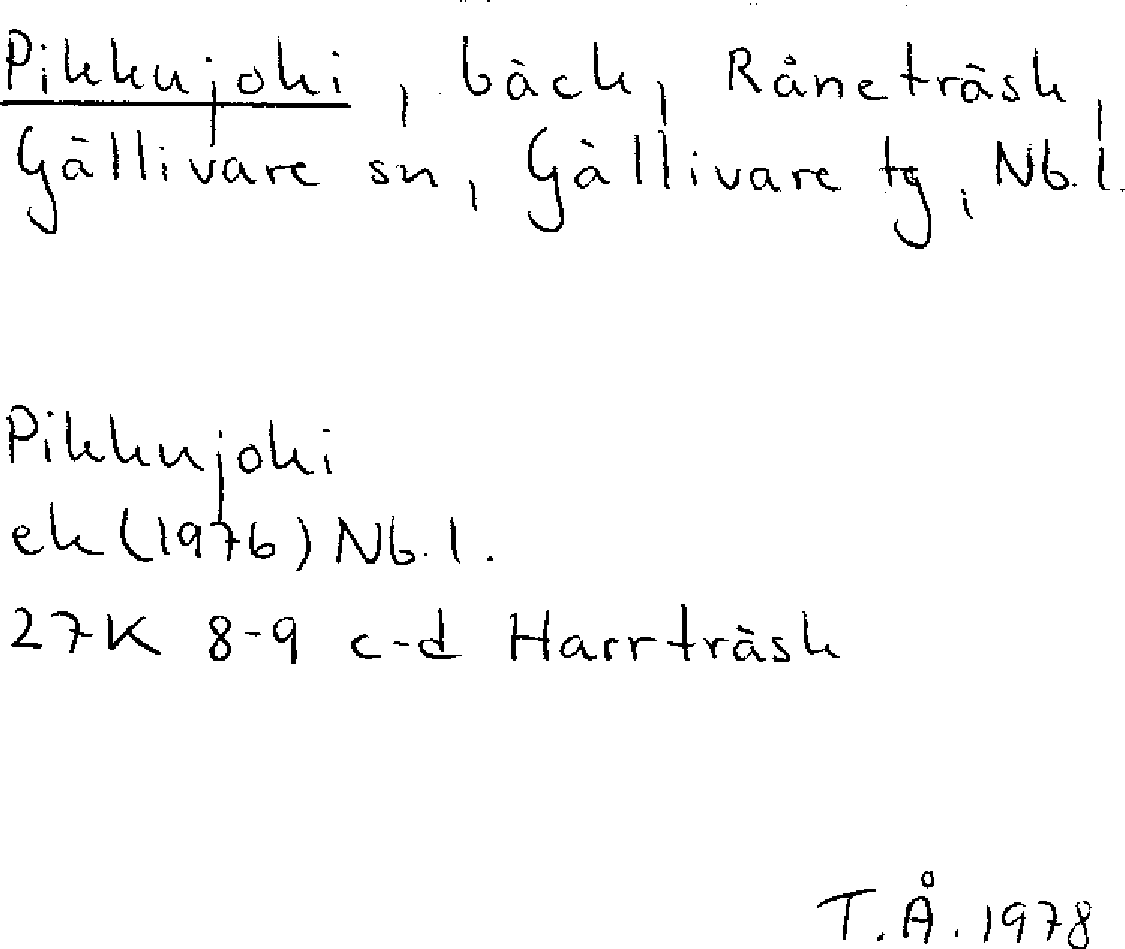 Pikkujoki, bäck, Råneträsk,
Gällivare sn, Gällivare tg, Nb.l.
Pikkujoki
ek (1976) Nb.l.
27K 8-9 c-d Harrträsk
T.Å. 1978